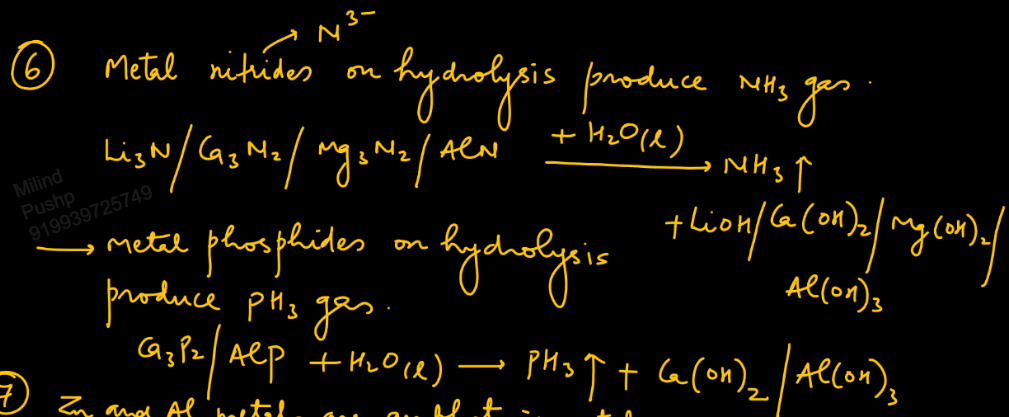 N³⁻
⑥ Metal nitrides on hydrolysis produce NH₃ gas.
Li₃N / Ca₃N₂ / Mg₃N₂ / AlN + H₂O(l) → NH₃ ↑
+ LiOH / Ca(OH)₂ / Mg(OH)₂ /
Al(OH)₃
Milind
Pushp
919939725749
→ Metal phosphides on hydrolysis
produce PH₃ gas.
Ca₃P₂ / AlP + H₂O(l) → PH₃ ↑ + Ca(OH)₂ / Al(OH)₃
7 Zn and Al metals are